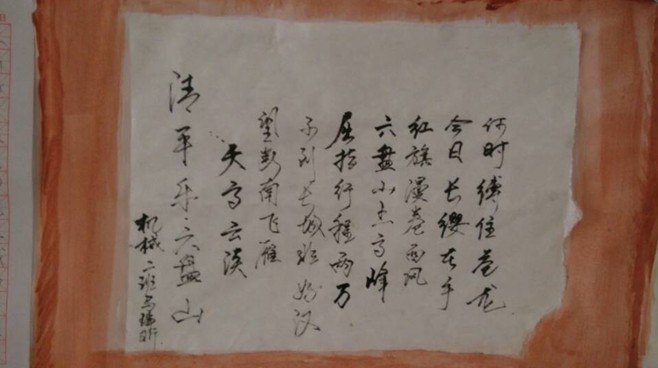 清平乐六盘山
天高云淡
望断南飞雁
不到长城非好汉
屈指行程两万
六盘山上高峰
红旗漫卷西风
今日长缨在手
何时缚住苍龙
机械二班